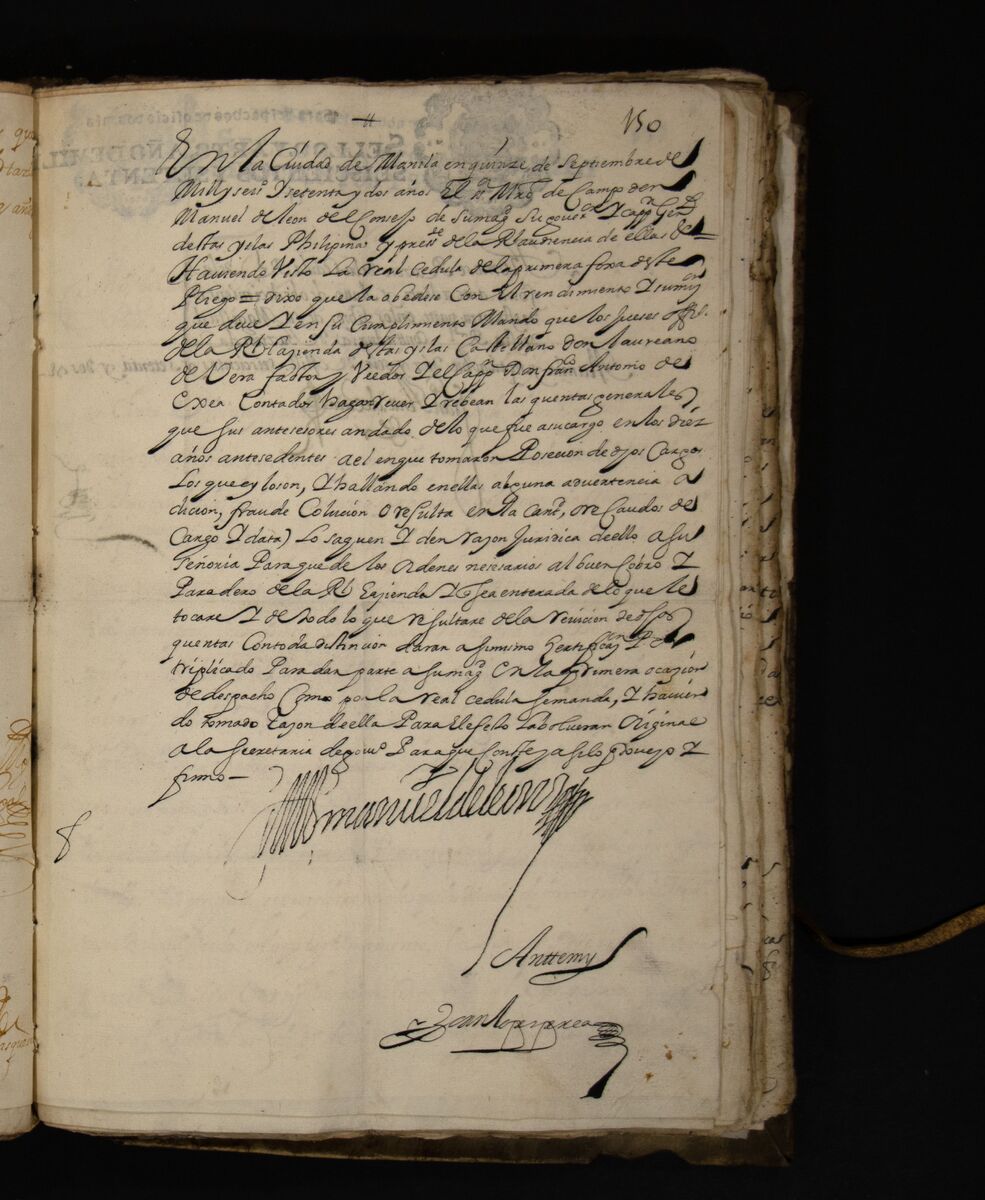 150
En la Ciudad de Manila en quinze de Septiembre de
Mill y seisº Y setenta y dos años El sr Mrō de Campo don
Manuel de leon del Consejo de su magd su gover.or Y capp.n Gen.l
destas yslas Philipinas y presi.te de la Rl audiencia de ellas &c
Haviendo Visto La real cedula de la primera foxa deste
Pliego = dixo que la obedese Con El rendimiento Y sumis.on
que deve Y en su Cumplimiento Mando que los Jueses offi.s
de la Rl Hazienda destas yslas Castellano don laureano
de Vera factor y Veedor Y el Capp.n Don fran.co Antonio de
Exea Contador hagan rever Y rebean las quentas generales
que sus antesesores an dado de lo que fue a su cargo en los diez
años antesedentes a el en que tomaron Posecion de dhos Cargos
Los que oy lo son, Y hallando en ellas alguna advertencia a
dicion, fraude Colucion O resulta en la cant.d o recaudos de
Cargo Y data) Lo saquen Y den razon Juridica de ello a su
Señoria Para que de los ordenes nesesarios al buen Cobro Y
Paradero de la Rl Hazienda Y sea enterada de lo que le
tocare Y de todo lo que resultare de la revicion de dhas
quentas Con toda distincion daran asimismo Zertificaz.on Por
triplicado Para dar parte a su mag.d En la primera ocazion
de despacho Como por la real cedula se manda, Y havien
do tomado razon de ella Para El efeto La bolveran Original
a la secretaria de gov.no Para que Conste y asi lo proveyo Y
firmo —
Dn manuel de leon
Antte my
Joan